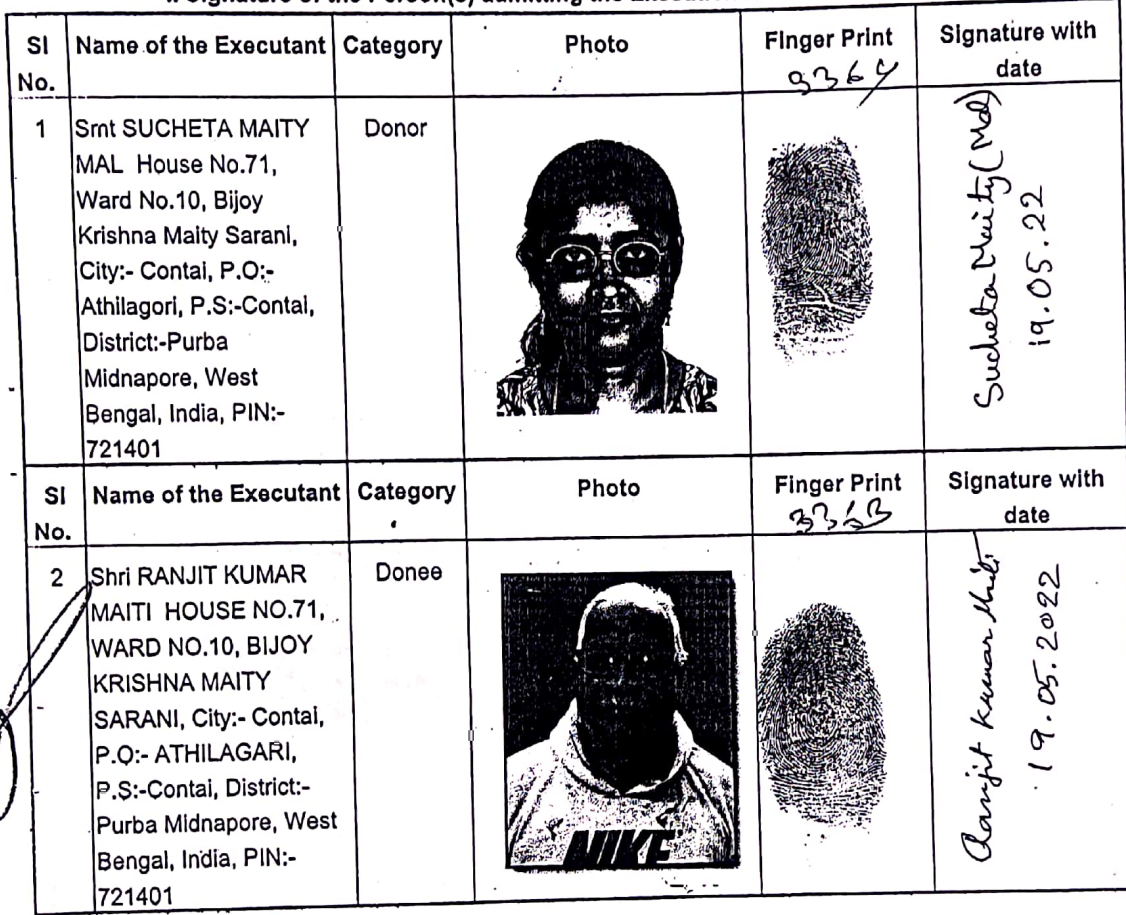 Signature of the Person(s) admitting the Execution
Sl No. Name of the Executant Category Photo Finger Print Signature with date
9364
1 Smt SUCHETA MAITY Donor
MAL House No.71,
Ward No.10, Bijoy
Krishna Maity Sarani,
City:- Contai, P.O:-
Athilagori, P.S:-Contai,
District:-Purba
Midnapore, West
Bengal, India, PIN:-
721401
Sucheta Maity (Mal)
19.05.22
Sl No. Name of the Executant Category Photo Finger Print Signature with date
2 Shri RANJIT KUMAR Donee
MAITI HOUSE NO.71,
WARD NO.10, BIJOY
KRISHNA MAITY
SARANI, City:- Contai,
P.O:- ATHILAGARI,
P.S:-Contai, District:-
Purba Midnapore, West
Bengal, India, PIN:-
721401
NIKE
Ranjit Kumar Maiti
19.05.2022